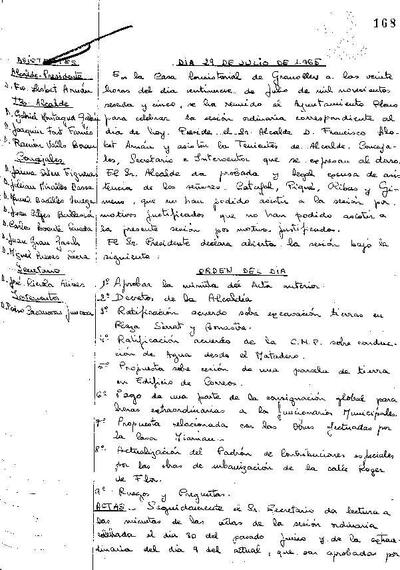 168
ASISTENTES
Alcalde-Presidente
D. Fco. Llobet Arnán
Tes. Alcalde
D. Gabriel
D. Joaquin Font
D. Ramón Valls
Concejales
D. Jaime
D. Julian
D. José
D. Carlos
D. Juan Grau
D. Miguel
Secretario
D. José
Interventor
D. Pedro
DIA 29 DE JULIO DE 1.965
En la Casa Consistorial de Granollers a las veinte
horas del dia veintinueve de Julio de mil novecientos
sesenta y cinco, se ha reunido el Ayuntamiento Pleno
para celebrar la sesión ordinaria correspondiente al
dia de hoy. Preside el Sr. Alcalde D. Francisco Llo-
bet Arnán y asisten los Tenientes de Alcalde, Conceja-
les, Secretario e Interventor que se expresan al dorso.
El Sr. Alcalde da probada y legal excusa de asis-
tencia de los señores. Catafal, Piqué, Ribas y Gi-
meno, que no han podido asistir a la sesión por
motivos justificados que no han podido asistir a
la presente sesión por motivos justificados.
El Sr. Presidente declara abierta la sesión bajo la
siguiente.
ORDEN DEL DIA
1º Aprobar la minuta del Acta anterior.
2º Decretos de la Alcaldía
3º Ratificación acuerdo sobre excavación tierras en
Plaza Serrat y Bonastre.
4º Ratificación acuerdo de la C.M.P. sobre conduc-
ción de Agua desde el Matadero.
5º Propuesta sobre cesión de una parcela de tierra
en Edificio de Correos.
6º Pago de una parte de la consignación global para
horas extraordinarias a los funcionarios Municipales.
7º Propuesta relacionada con las Obras efectuadas por
la Casa
8º Actualización del Padrón de Contribuciones especiales
por las obras de urbanización de la calle Roger
de Flor.
9º Ruegos y Preguntas.
ACTAS.- Seguidamente el Sr. Secretario da lectura a
las minutas de las actas de la sesión ordinaria
celebrada el dia 30 del pasado junio y de la extraor-
dinaria del dia 9 del actual, que son aprobadas por